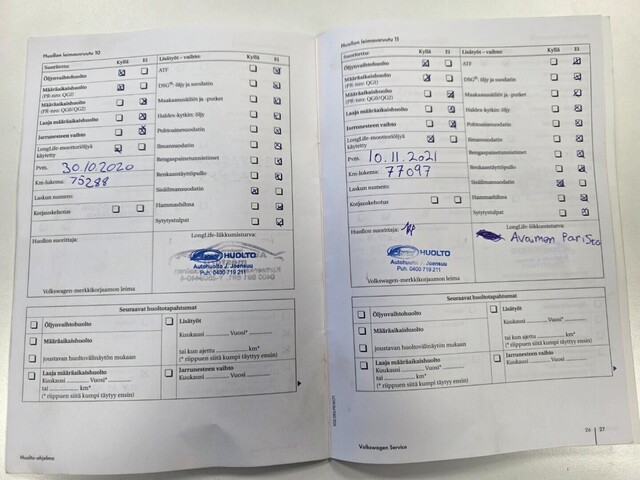 Huollon leimausruutu 10
Suoritettu: Kyllä Ei
Öljynvaihtohuolto
Määräaikaishuolto
(PR-nro: QGI)
Määräaikaishuolto
(PR-nro: QG0/QG2)
Laaja määräaikaishuolto
Jarrunesteen vaihto
LongLife-moottoriöljyä
käytetty
Pvm. 30.10.2020
Km-lukema: 75288
Laskun numero:
Korjauskehotus
Lisätyöt – vaihto: Kyllä Ei
ATF
DSG®-öljy ja suodatin
Maakaasusäiliöt ja -putket
Haldex-kytkin: öljy
Polttoainesuodatin
Ilmansuodatin
Rengaspaineentunnistimet
Renkaantäyttöpullo
Sisäilmansuodatin
Hammashihna
Sytytystulpat
Huollon suorittaja:
LongLife-liikkumisturva:
HUOLTO
Autohuolto J. Joensuu
Puh. 0400 719 211
Volkswagen-merkkikorjaamon leima
Seuraavat huoltotapahtumat
Öljynvaihtohuolto
Määräaikaishuolto
joustavan huoltovälinäytön mukaan
Laaja määräaikaishuolto
Kuukausi Vuosi*
tai km*
(* riippuen siitä kumpi täyttyy ensin)
Lisätyöt
Kuukausi Vuosi*
tai kun ajettu km*
(* riippuen siitä kumpi täyttyy ensin)
Jarrunesteen vaihto
Kuukausi Vuosi
Huolto-ohjelma
Huollon leimausruutu 11
Suoritettu: Kyllä Ei
Öljynvaihtohuolto
Määräaikaishuolto
(PR-nro: QGI)
Määräaikaishuolto
(PR-nro: QG0/QG2)
Laaja määräaikaishuolto
Jarrunesteen vaihto
LongLife-moottoriöljyä
käytetty
Pvm. 10.11.2021
Km-lukema: 77097
Laskun numero:
Korjauskehotus
Lisätyöt – vaihto: Kyllä Ei
ATF
DSG®-öljy ja suodatin
Maakaasusäiliöt ja -putket
Haldex-kytkin: öljy
Polttoainesuodatin
Ilmansuodatin
Rengaspaineentunnistimet
Renkaantäyttöpullo
Sisäilmansuodatin
Hammashihna
Sytytystulpat
Huollon suorittaja:
LongLife-liikkumisturva:
Avaimen Paristo
HUOLTO
Autohuolto J. Joensuu
Puh. 0400 719 211
Volkswagen-merkkikorjaamon leima
Seuraavat huoltotapahtumat
Öljynvaihtohuolto
Määräaikaishuolto
joustavan huoltovälinäytön mukaan
Laaja määräaikaishuolto
Kuukausi Vuosi*
tai km*
(* riippuen siitä kumpi täyttyy ensin)
Lisätyöt
Kuukausi Vuosi*
tai kun ajettu km*
(* riippuen siitä kumpi täyttyy ensin)
Jarrunesteen vaihto
Kuukausi Vuosi
Volkswagen Service
26 27